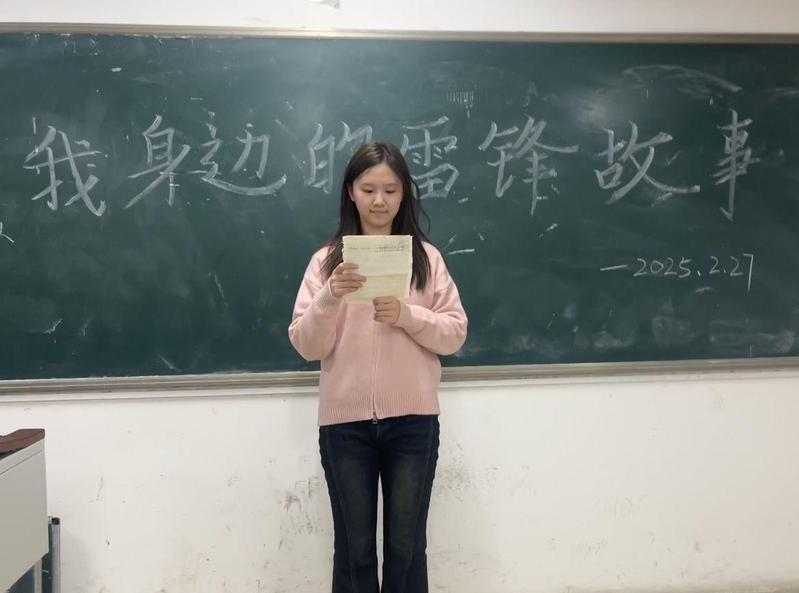 我身边的雷锋故事
—2025.2.27